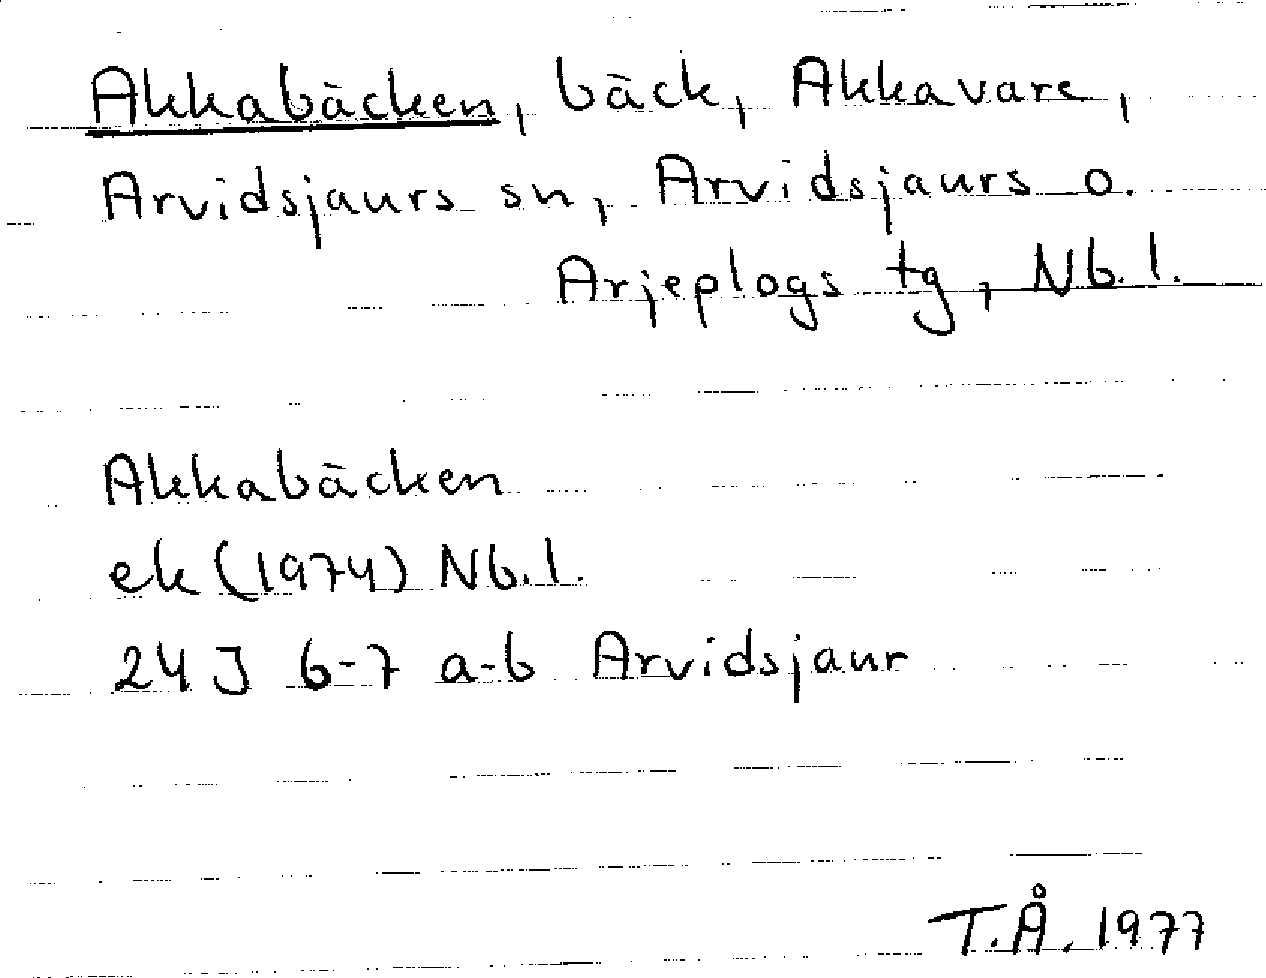 Akkabäcken, bäck, Akkavare,
Arvidsjaurs sn, Arvidsjaurs o.
Arjeplogs tg, Nb.l.
Akkabäcken
ek (1974) Nb.l.
24 J 6-7 a-b Arvidsjaur
T.Å. 1977